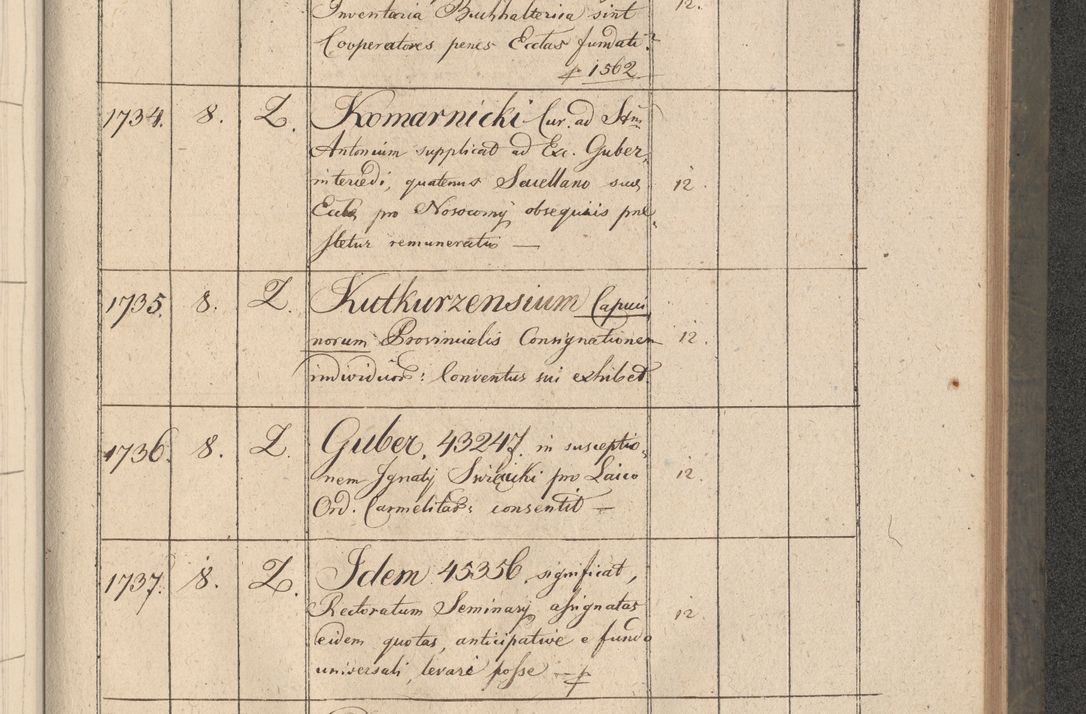 Inventaria Buchhalterica sint 12.
Cooperatores penes Ecclas fundati?
1562
1734. 8. Z. Komarnicki Cur. ad Stum
Antonium supplicat ad Exc. Guber.
intercedi, quatenus Sacellano suae
Eccle pro Nosocomÿ obsequiis præ 12.
stetur remuneratio —
1735. 8. Z. Kutkurzensium Capuci
norum Provincialis Consignationem 12.
individuor: Conventus sui exhibet.
1736. 8. Z. Guber. 43247. in susceptio
nem Jgnatÿ Swiecicki pro Laico 12.
Ord. Carmelitar: consentit —
1737. 8. Z. Idem 45356. significat,
Rectoratum Seminarÿ assignatas 12
eidem quotas, anticipative e fundo
universali levare posse —